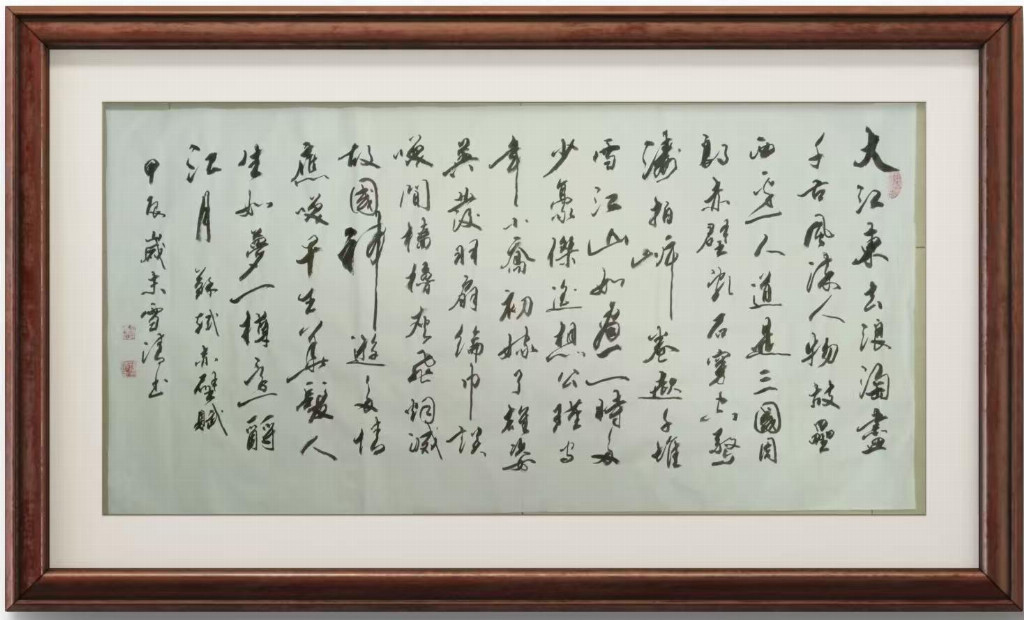 大江東去浪淘盡
千古風流人物故壘
西邊人道是三國周
郎赤壁亂石穿空驚
濤拍岸卷起千堆
雪江山如畫一時多
少豪傑遙想公瑾當
年小喬初嫁了雄姿
英發羽扇綸巾談
笑間檣櫓灰飛烟滅
故國神遊多情
應笑早生華髮人
生如夢一樽還酹
江月 蘇軾赤壁賦
甲辰歲末雪清书